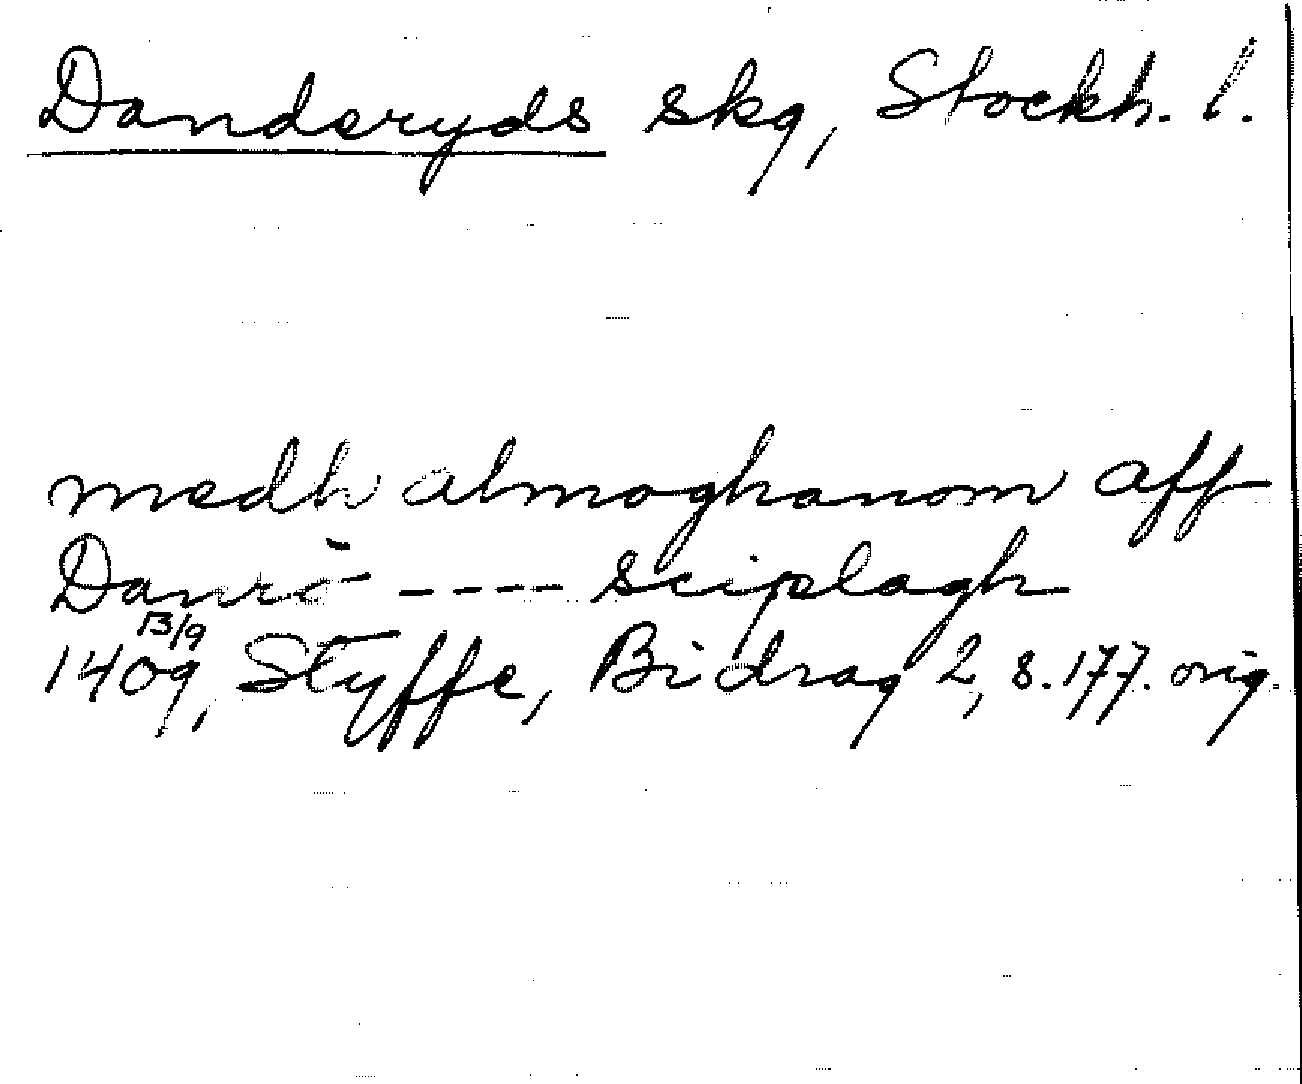 Danderyds skg, Stockh. l.
medh almoghanom aff
Danrö ---- sciplagh
13/9
1409, Styffe, Bidrag 2, s. 177. orig.